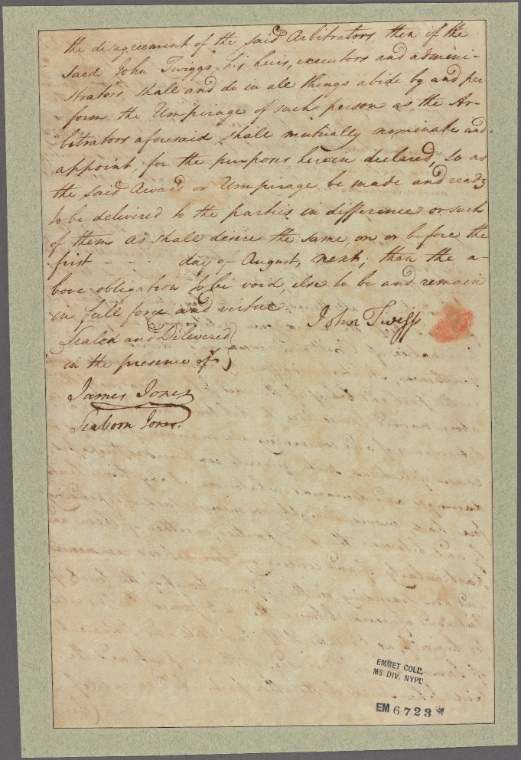 the disagreement of the said Arbitrators then if the
said John Twiggs, his heirs, executors and admini-
strators shall and do in all things abide by and per
form the Umpirage of such person as the Ar-
bitrators aforesaid shall mutually nominate and
appoint, for the purposes herein declared, so as
the said Award or Umpirage be made and ready
to be delivered to the parties in difference or such
of them as shall desire the same, on or before the
first - - - day of August, next; than the a-
bove obligation to be void, else to be and remain
in full force and virtue.
John Twiggs
Sealed and Delivered
in the presence of
James Jones
Seaborn Jones.
EMMET COLL.
MS DIV. NYPL
EM 6723